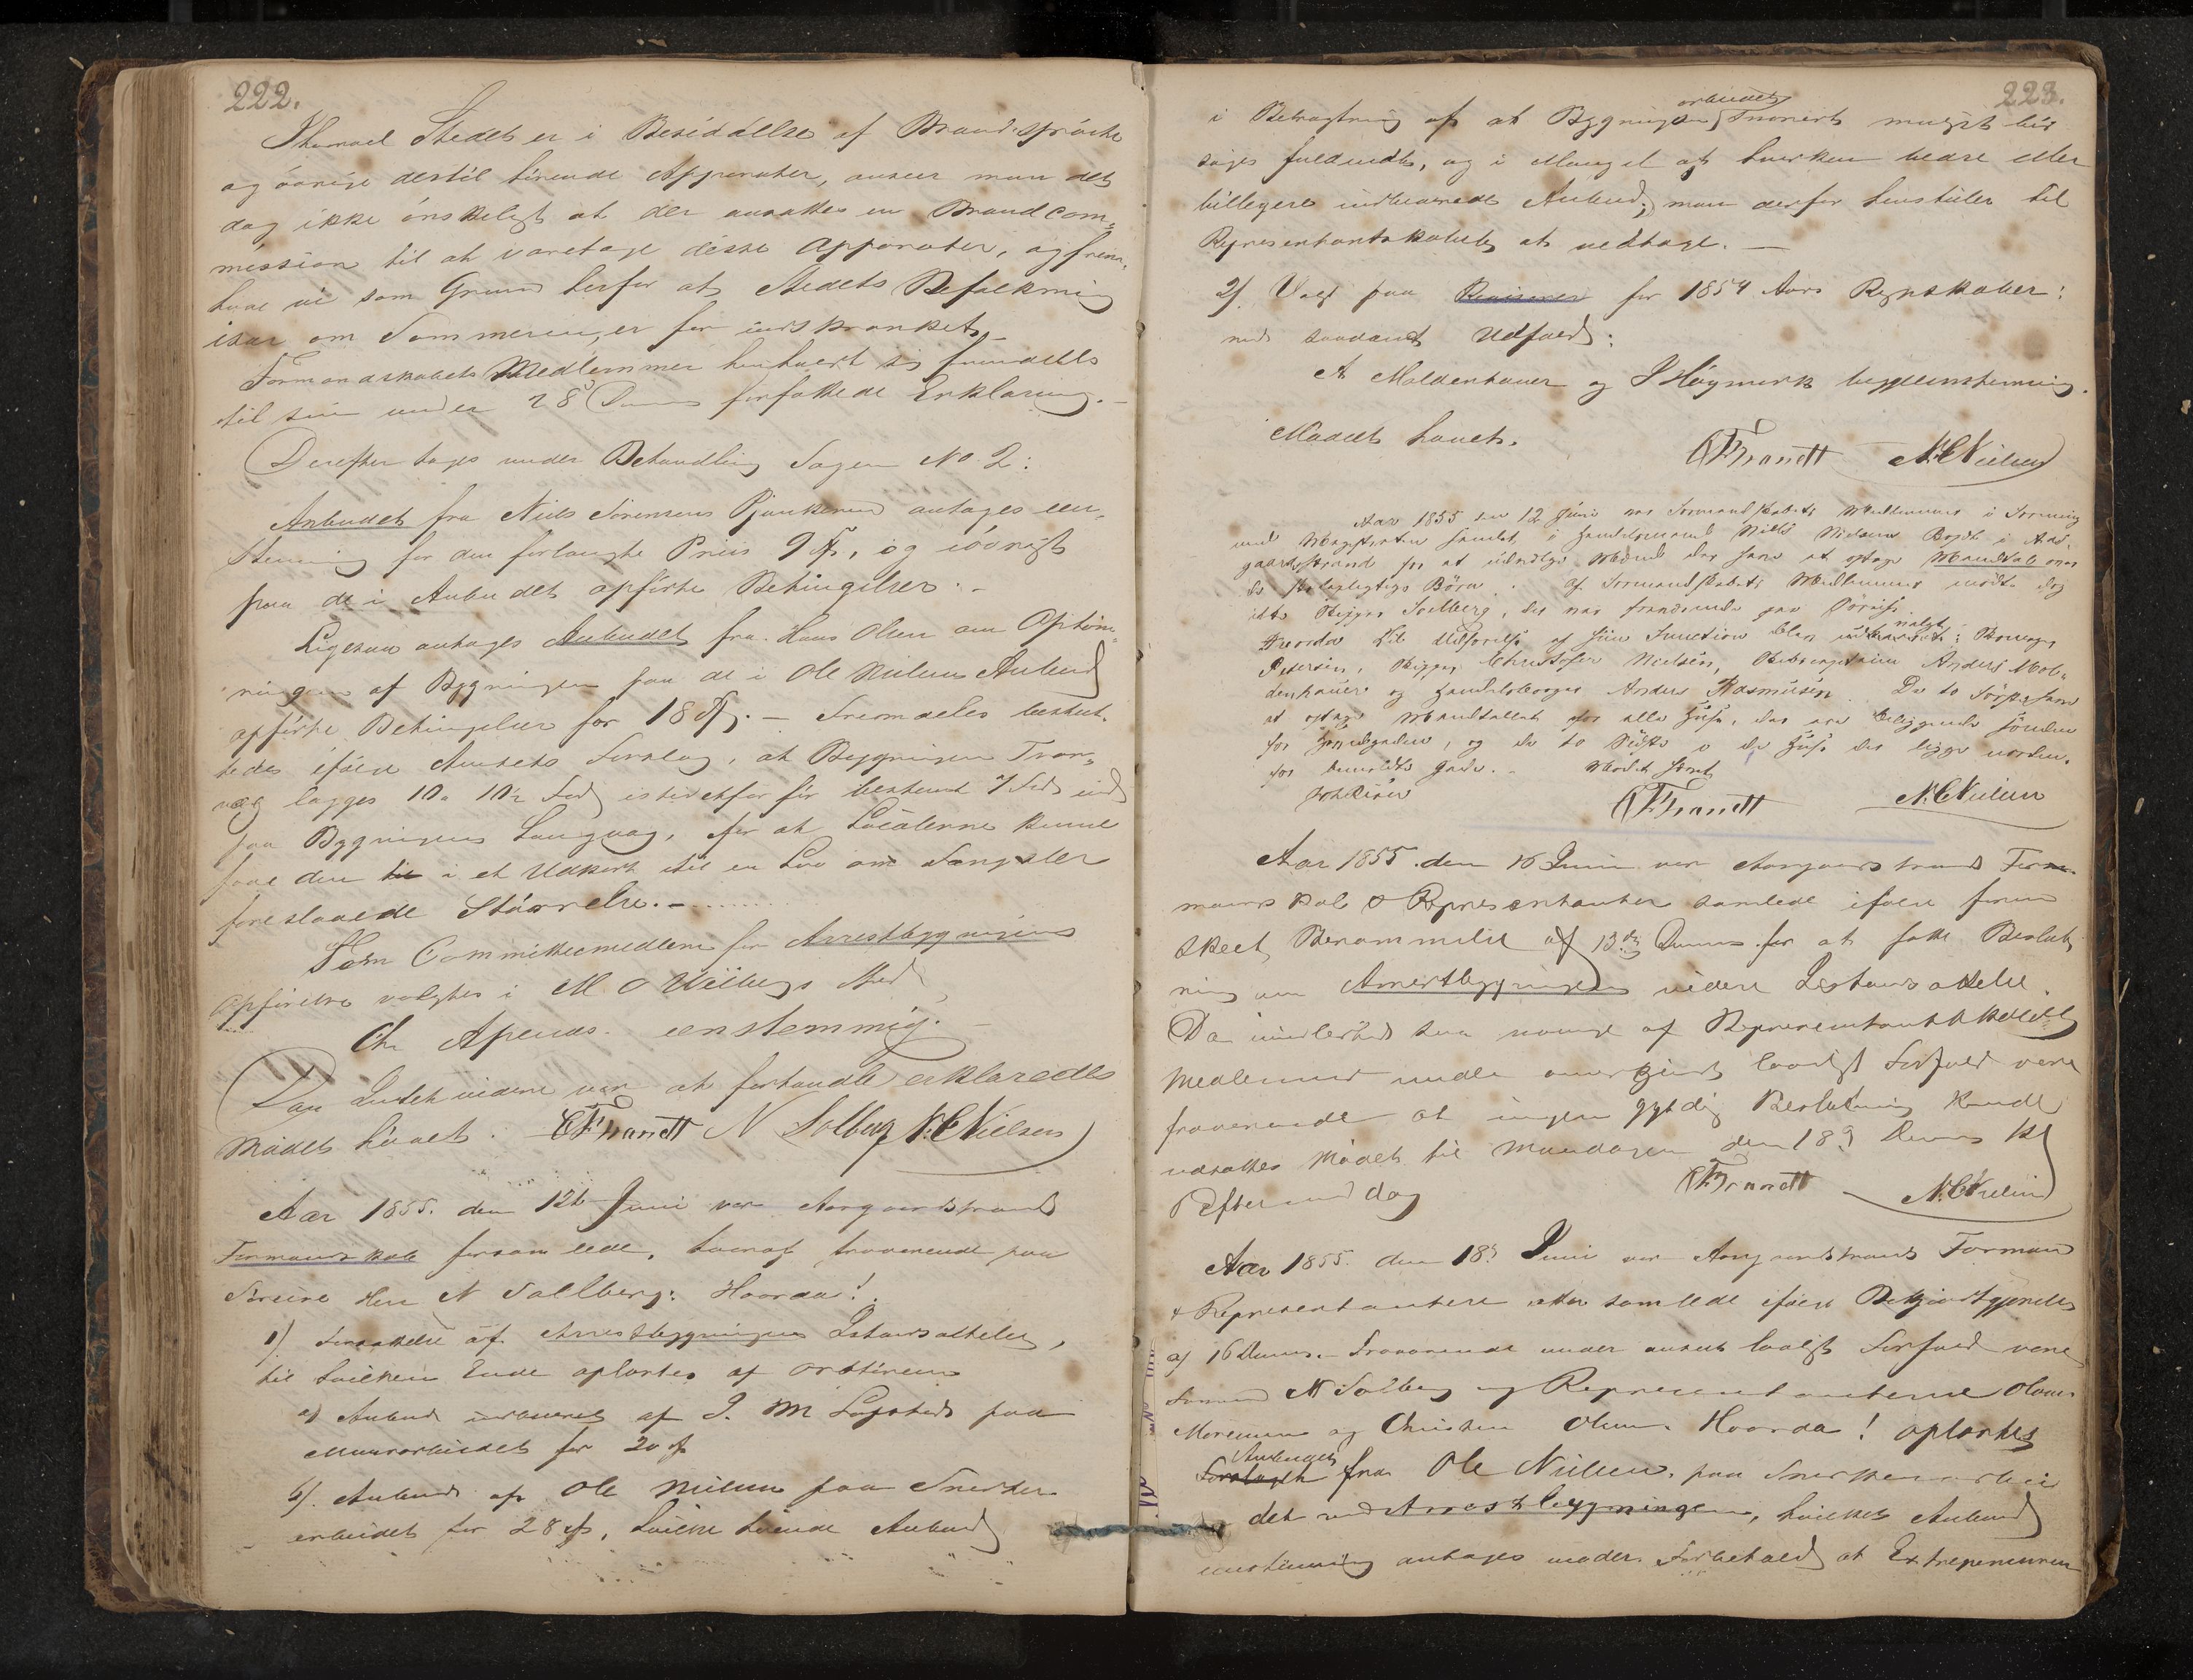 222.
Ihvorvel Stedet er i Besiddelse af Brandsprøite
og øvrige dertil hørende Apparater, anseer man det
dog ikke ønskeligt at der ansættes en Brandcom=
mission til at varetage disse Apparater, og frem,
have vi som Grund herfor at Stedets Befolkning
især om Sommeren, er for indskrænket. –
Formandskabets Medlemmer henholdt sig fremdeles
til sin under 28 Dennes forfattede Erklæring. –
Derefter toges under Behandling Sagen No 2:
Anbudet fra Niels Sørensen antoges een,
stemmig for den forlangte Priis 9 , og iøvrigt
paa de i Anbudet opførte Betingelser. –
Ligesaa antoges Anbudet fra Hans Olsen om Optøm=
ringen af Bygningen paa de i Ole Nielsens Anbud
opførte Betingelser for 18 . – Fremdeles beslut,
tedes ifølge Amtets Forslag, at Bygningen Tvær=
væg lægges 10 a 10½ Fod istedetfor før bestemt 7 Fod ind
paa Bygningens Langvæg, for at Localerne kunne
faae den i et Udkast til en Lov om Fængsler
foreslaaede Størrelse. –
Som Committeemedlem for Arrestbygningens
Opførelse valgtes i M O Sted
Chr Apenæs eenstemmig. –
Da Intet videre var at forhandle erklæredes
Mødet hævet. CFBrandt N Solberg N.C.Nielsen
Aar 1855. den 12te Juni var Aasgaardstrands
Formandskab forsamlede, hvoraf fraværende paa
Søreise Herr N Sollberg: Hvorda!
1) Forsættelse af Arrestbygningens Istandsættelse,
til hvilken Ende oplæstes af Ordføreren
a) Anbud indleveret af J. M paa
Muurarbeidet for 20
b). Anbud af Ole Nielsen paa Snedker
arbeidet for 28 , hvilke tvende Anbud
223.
arbeidet
i Betragtning af at Bygningen snarest muligt bør
søges fuldendt, og i Mangel af hverken bedre eller
billigere indleverede Anbud; man derfor henstiller til
Representantskabet at vedtage. –
2). Valg paa Revisorer for 1854 Aars Regnskaber:
med saadant Udfald:
A Moldenhauer og J Høymark
Mødet hævet.
CFBrandt N.C.Nielsen
Aar 1855 den 12 Juni var Formandskabets Medlemmer i Forening
med Magistraten samlet i Handelsmand Niels Nielsens i Aas,
gaardstrand for at udvælge Mænd der have at optage Mandtal over
de Børn. Af Formandskabets Medlemmer mødte dog
ikke Skipper Sollberg, der var fraværende paa Søreise.
Hvorda til Udførelse af sin Function blev valgt:
Petersen, Skipper Christofer Nielsen, Anders Mol=
denhauer og Handelsborger Anders Rasmusen. De to Første have
at optage Mandtallet for alle Huse, der ere beliggende sønden
for , og de to Sidste o de Huse der ligge norden,
for bemeldte Gade. – Mødet hævet
CFBrandt N.C.Nielsen
Aar 1855. den 16 Juni var Aasgaardstrands For
mandskab & Representanter samlede ifølge forud
skeet Berammelse af 13de Dennes for at fatte Beslut,
ning om Arrestbygningens videre Istandsættelse.
Da imidlertid saa mange af Representantskabets
Medlemmer uden lovligt Forfald vare
fraværende at ingen gyldig Beslutning kunde
udsattes Mødet til Mandagen den 18d Dennes Kl
Eftermiddag CFBrandt N.C.Nielsen
Aar 1855. den 18d Juni var Aasgaardstrands Formænd
& Representantere atter samlede ifølge Bekjendtgjørelse
af 16 Dennes. – Fraværende under anmeldt lovligt Forfald vare
Formand N Solberg og Representanterne Olaus
Morensen og Christen Olsen. Hvorda! oplæstes
Anbudet
Forslaget fra Ole Nielsen, paa Snedkerarbei
det ved Arrestbygningen, hvilket Anbud
eenstemmig antoges under Forbehold at Entrepeneuren